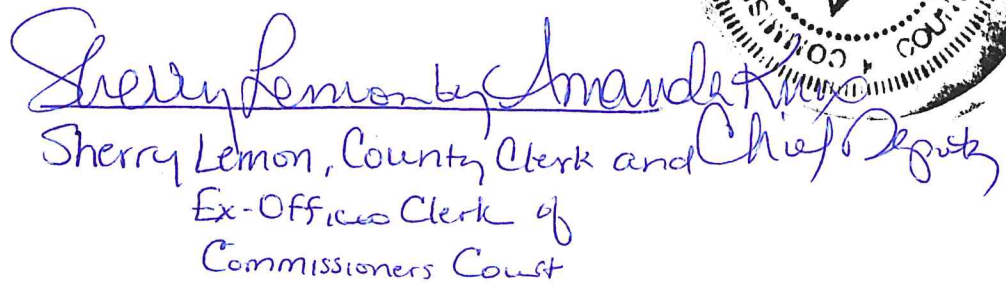 Sherry Lemon by Amanda Knox
Sherry Lemon, County Clerk and Chief Deputy
Ex-Officio Clerk of
Commissioners Court